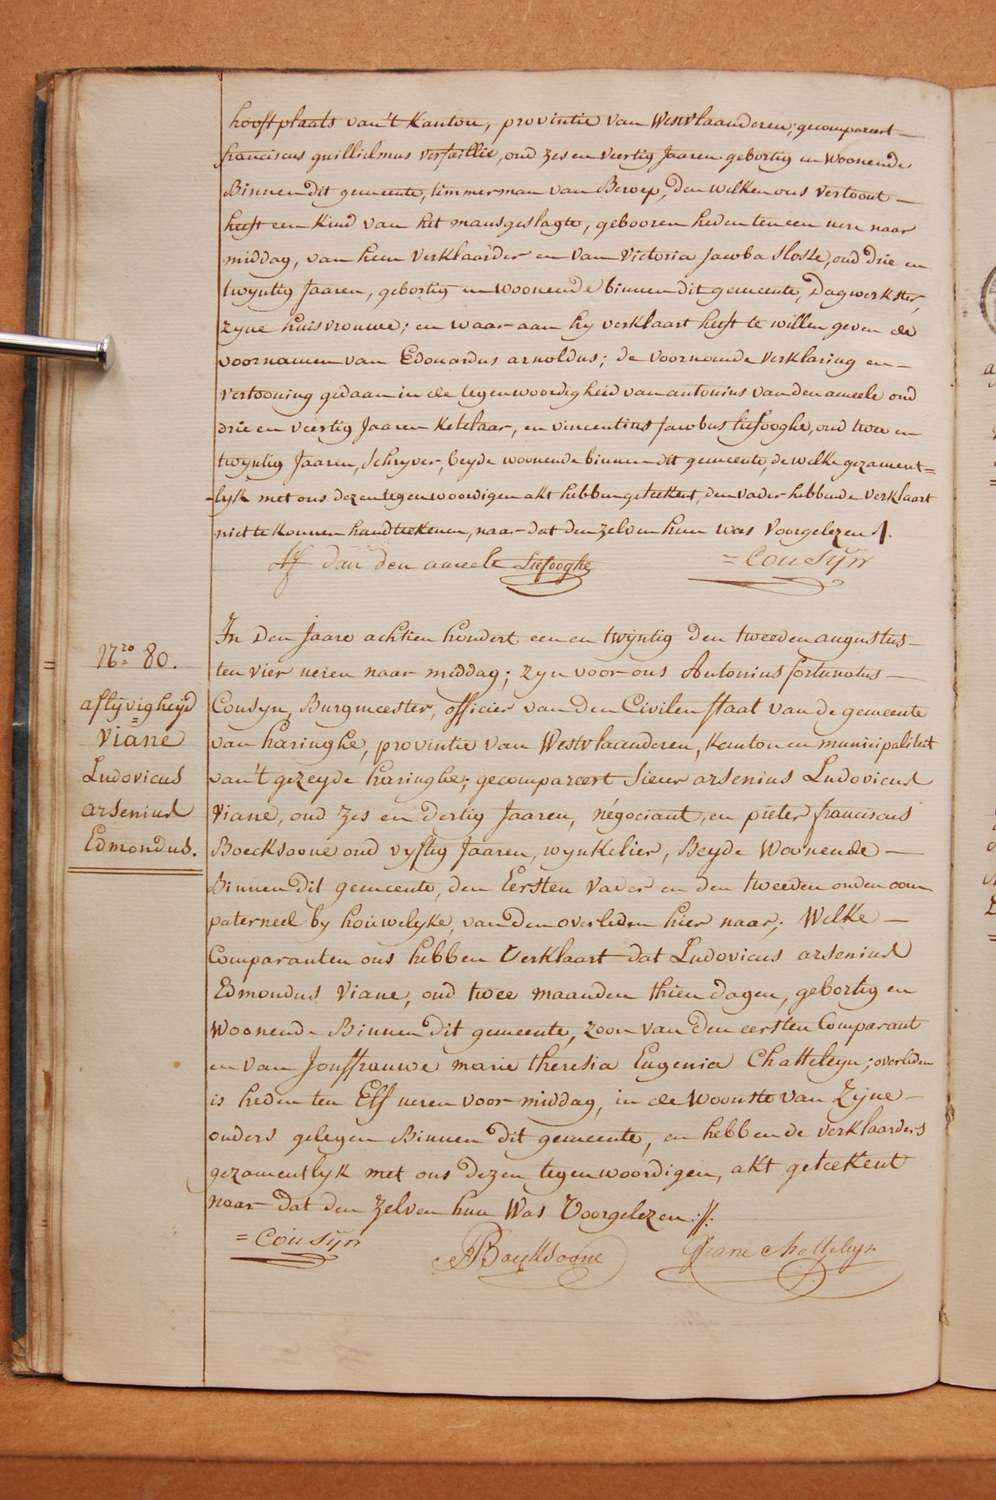 hooftplaats van't Kanton, provintie van Westvlaanderen; gecompareert
franciscus guillielmus versaillie, oud zes en veertig Jaaren gebortig en woonende
Binnen dit gemeente, timmerman van Beroep, den welken ons vertoont
heeft een kind van het mansgeslagte, gebooren heden ten een uere naar
middag, van hem verklaarder en van victoria jacoba Slosse, oud drie en
twyntig Jaaren, gebortig en woonende binnen dit gemeente, Dagwerkster,
zyne huisvrouwe; en waar aan hy verklaart heeft te willen geven de
voornamen van Edouardus arnoldus; de voornoemde verklaring en
vertooning gedaan in de tegenwoordigheid van antonius vanden ameele oud
drie en veertig Jaaren Ketelaar, en vincentius jacobus liefooghe, oud twee en
twyntig Jaaren, Schryver, beyde woonende binnen dit gemeente, de welke gezament=
lyk met ons dezen tegenwoordigen akt hebben geteekent, den vader hebbende verklaart
niet te konnen handteekenen, naar dat den zelven hun was voorgelezen
van den ameele Liefooghe =Cousÿn
N.ro 80.
aflÿvigheÿd
=
Viane
Ludovicus
arsenius
Edmondus.
In Den Jaare achtien hondert een en twÿntig den tweeden augustus
ten vier ueren naar middag; zyn voor ons Antonius fortunatus
Cousyn, Burgmeester, officier van den Civilen staat van de gemeente
van haringhe, provintie van Westvlaanderen, Kanton en municipaliteit
van't gezeyde haringhe; gecompareert Sieur arsenius Ludovicus
Viane, oud zes en dertig Jaaren, négociant, en pieter franciscus
Boecksoone oud vyftig Jaaren, wynkelier, Beyde Woonende
Binnen dit gemeente, den Eersten vader en den tweeden ouden oom
paterneel by houwelyke, van den overleden hier naar; Welke
Comparanten ons hebben Verklaart dat Ludovicus arsenius
Edmondus Viane, oud twee maanden thien dagen, gebortig en
Woonende Binnen dit gemeente, zoon van den eersten Comparant
en van Jouffrauwe marie theresia Eugenia Chatteleyn; overleden
is heden ten Elf ueren voor middag, in de Woonste van Zyne
ouders gelegen Binnen dit gemeente, en hebbende verklaarders
gezamentlyk met ons dezen tegenwoordigen, akt geteekent
naar dat den zelven hun Was Voorgelezen ://:
=Cousÿn Boecksoone Viane Chatteleyn